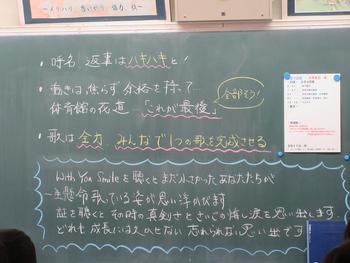 〜メリハリ、思いやり、協力、伏〜
・呼名、返事はハキハキと！
・動きは焦らず余裕を持って…
体育館の花道…「これが最後」
全部そう！
・歌は全力 みんなで1つの歌を完成させる
With You Smileを聴くとまだ小さかったあなたたちが
一生懸命歌っている姿が思い浮かびます
証を聴くと その時の真剣さと の悔し涙を思い出します
どれも成長には欠かせない 忘れられない思い出です